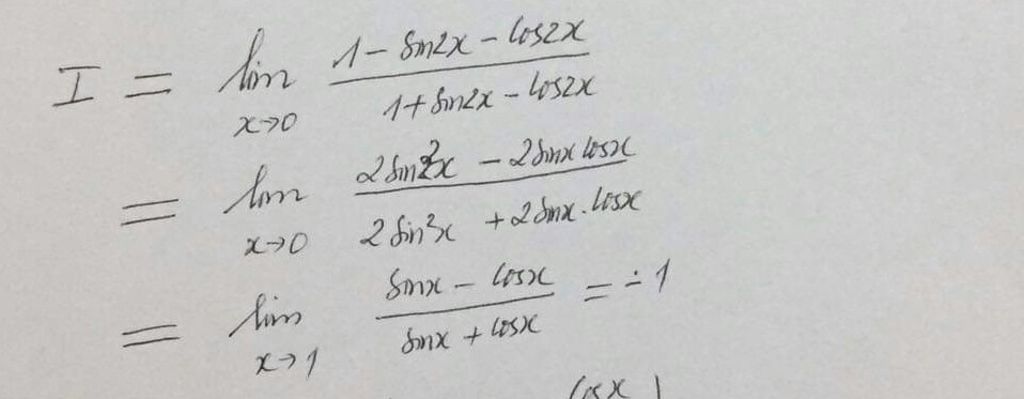 I = lim x→0 (1 - sin2x - cos2x) / (1 + sin2x - cos2x)
= lim x→0 (2sin²x - 2sinx cosx) / (2sin²x + 2sinx.cosx)
= lim x→1 (sinx - cosx) / (sinx + cosx) = -1
cosx